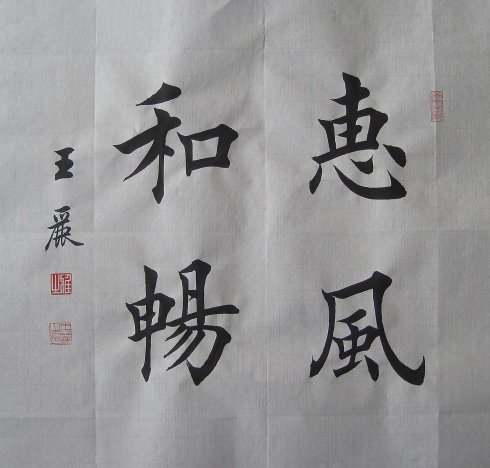 惠風
和暢
王麗